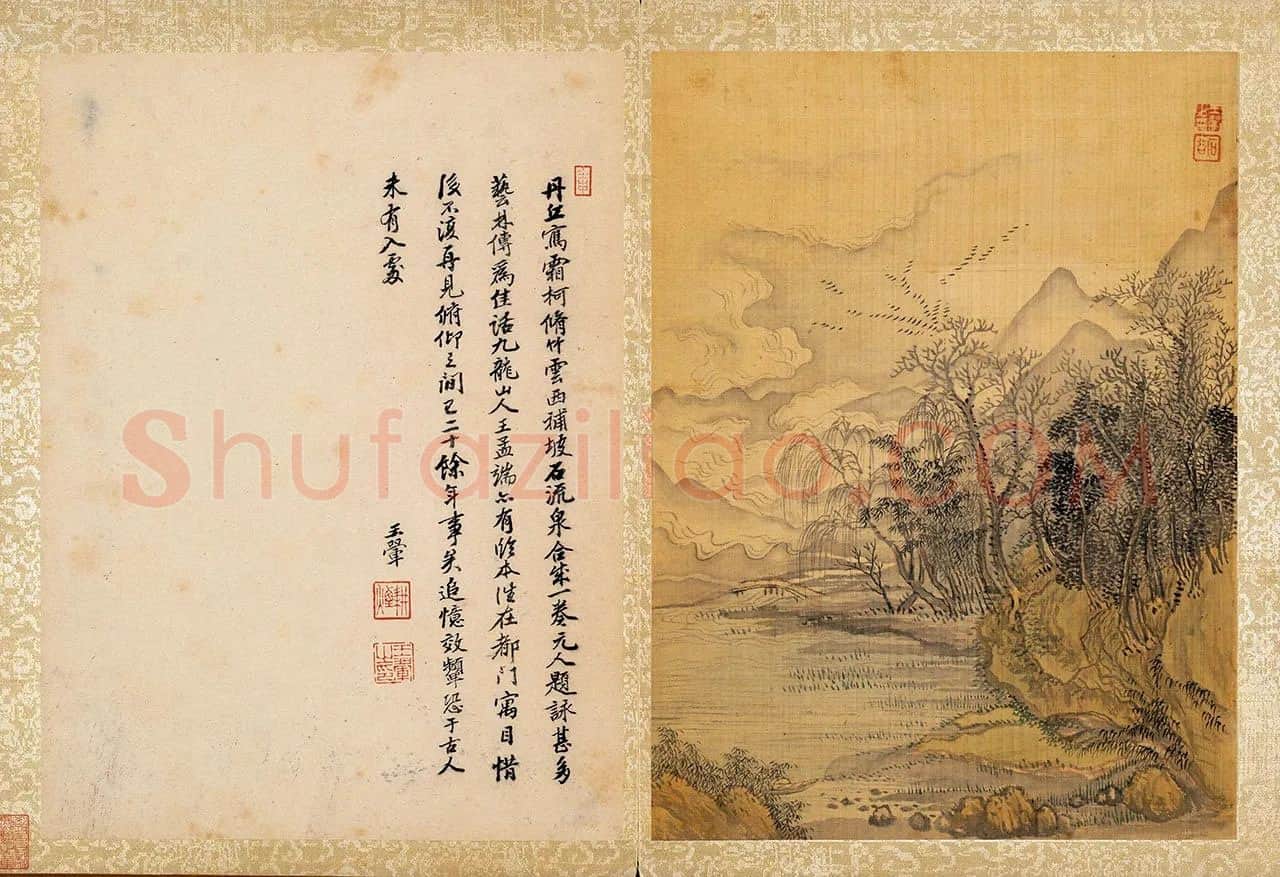 丹丘寫霜柯脩竹雲西補坡石流泉合成一卷元人題詠甚多
藝林傳爲佳話九龍山人王孟端亦有臨本往在都門寓目惜
後不復再見俯仰之間已二十餘年事矣追憶效顰恐于古人
未有入處
王翬
耕煙
王翬之印
Shufaziliao.COM